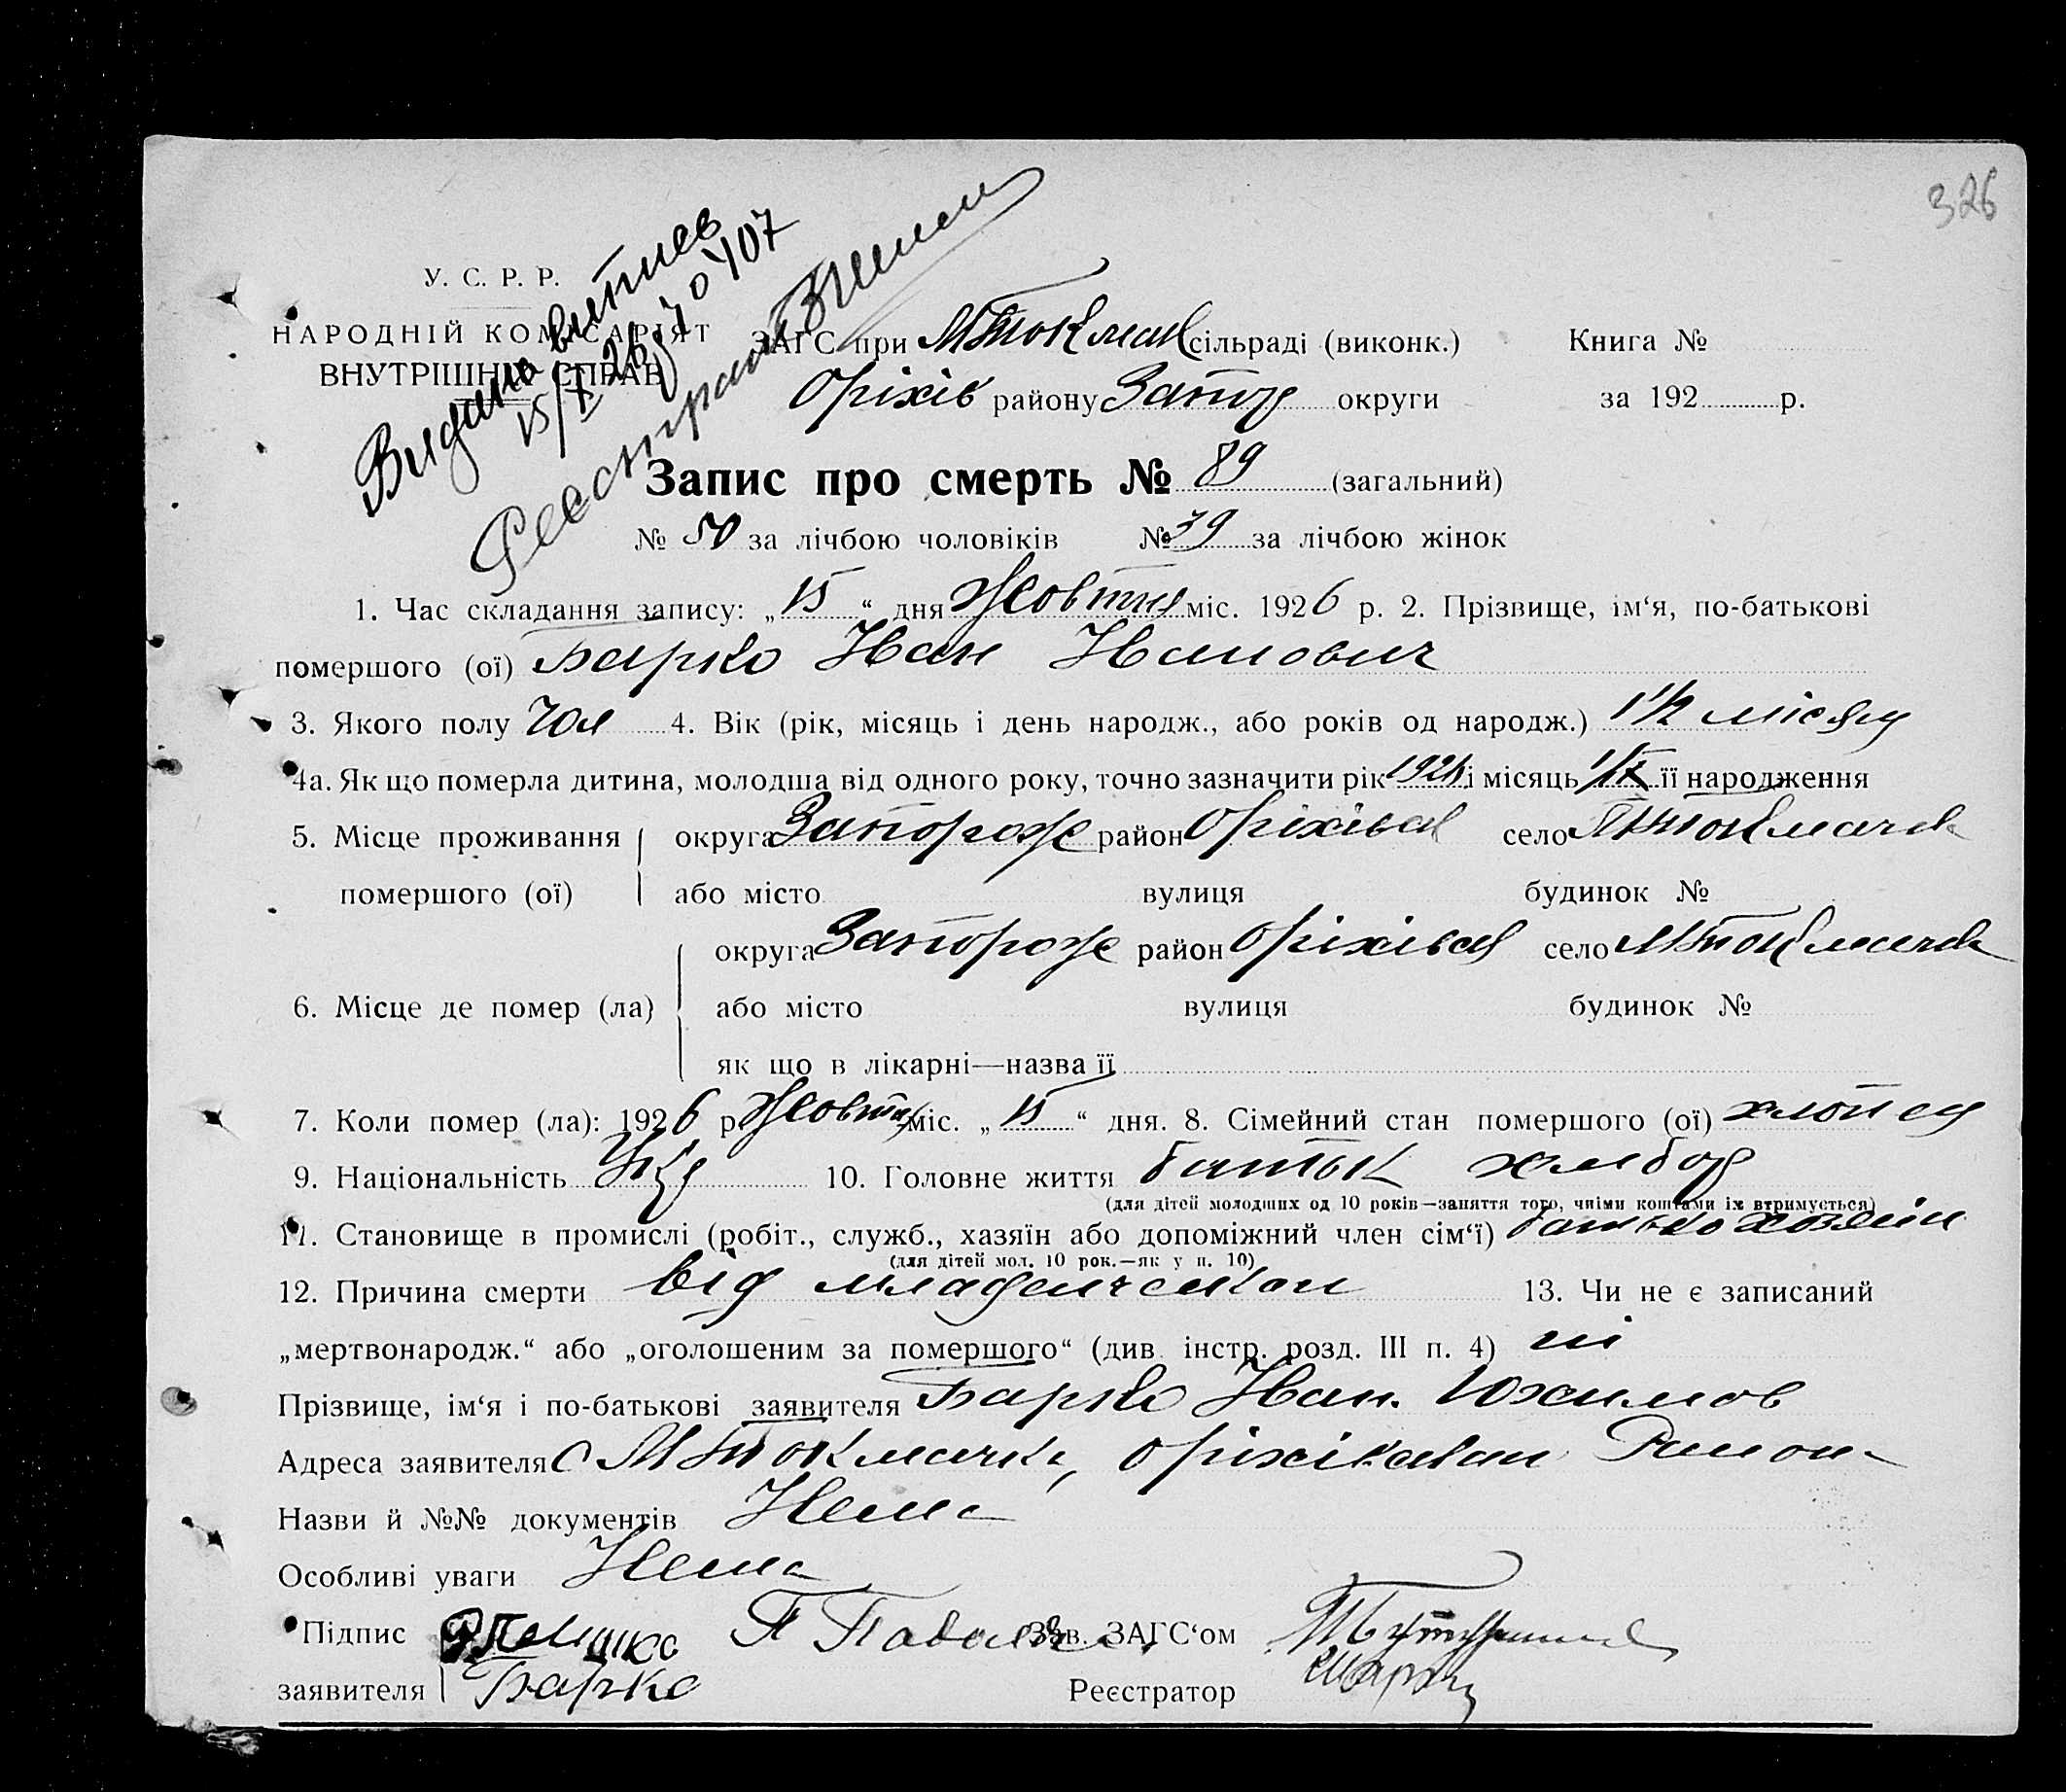 326
У. С. Р. Р.
НАРОДНІЙ КОМІСАРІЯТ
ВНУТРІШНІХ СПРАВ
Видано витпев
15/X 26 р
ЗАГС при МТокмач сільраді (виконк.) Книга №
Оріхів району Запор округи за 192 р.
Запис про смерть № 89 (загальний)
№ 50 за лічбою чоловіків № 39 за лічбою жінок
1. Час складання запису: „15“ дня Жовтня міс. 1926 р. 2. Прізвище, ім‘я, по-батькові
помершого (ої) Барко Иван Иванович
3. Якого полу чол 4. Вік (рік, місяць і день народж., або років од народж.) 1 1/2 місяця
4а. Як що померла дитина, молодша від одного року, точно зазначити рік 1926 і місяць 1/IX її народження
5. Місце проживання округа Запорож район Оріхівсь село МТокмачка
помершого (ої) або місто вулиця будинок №
округа Запорож район Оріхівсь село МТокмачка
6. Місце де помер (ла) або місто вулиця будинок №
як що в лікарні—назва її
7. Коли помер (ла): 1926 р Жовтня міс. „15“ дня. 8. Сімейний стан помершого (ої) хлопец
9. Національність Укр 10. Головне життя батьк хлибор
(для дітей молодших од 10 років—заняття того, чиїми коштами їх втримується)
11. Становище в промислі (робіт., служб., хазяїн або допоміжний член сім‘ї) батько хозяїн
(для дітей мол. 10 рок.—як у п. 10)
12. Причина смерти від младенческои 13. Чи не є записаний
„мертвонародж.“ або „оголошеним за помершого“ (див. інстр. розд. III п. 4) ні
Прізвище, ім‘я і по-батькові заявителя Барко Иван. Юхимов
Адреса заявителя С МТокмачка, Оріхівскаи Раион
Назви й №№ документів Нема
Особливі уваги Нема
Підпис Зав. ЗАГС‘ом
заявителя Барко Реєстратор